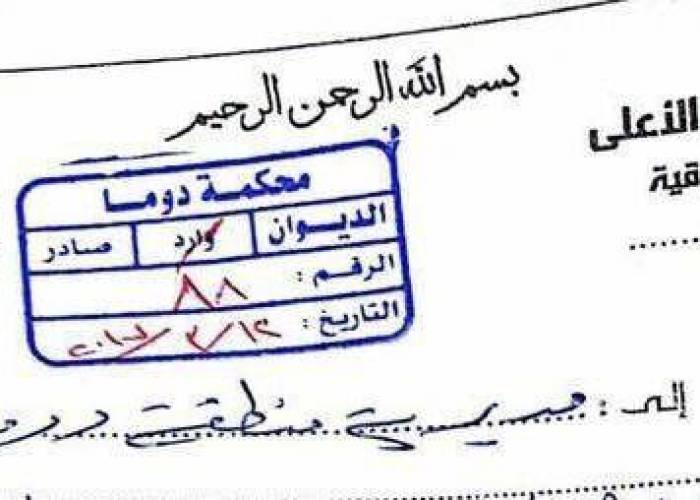 بسم الله الرحمن الرحيم
الأعلى
قية
محكمة دوما
الديوان وارد صادر
الرقم : ٨٨
التاريخ : ١٢ / ٣ / ٢٠١٧
إلى : مديرية منطقة دوم